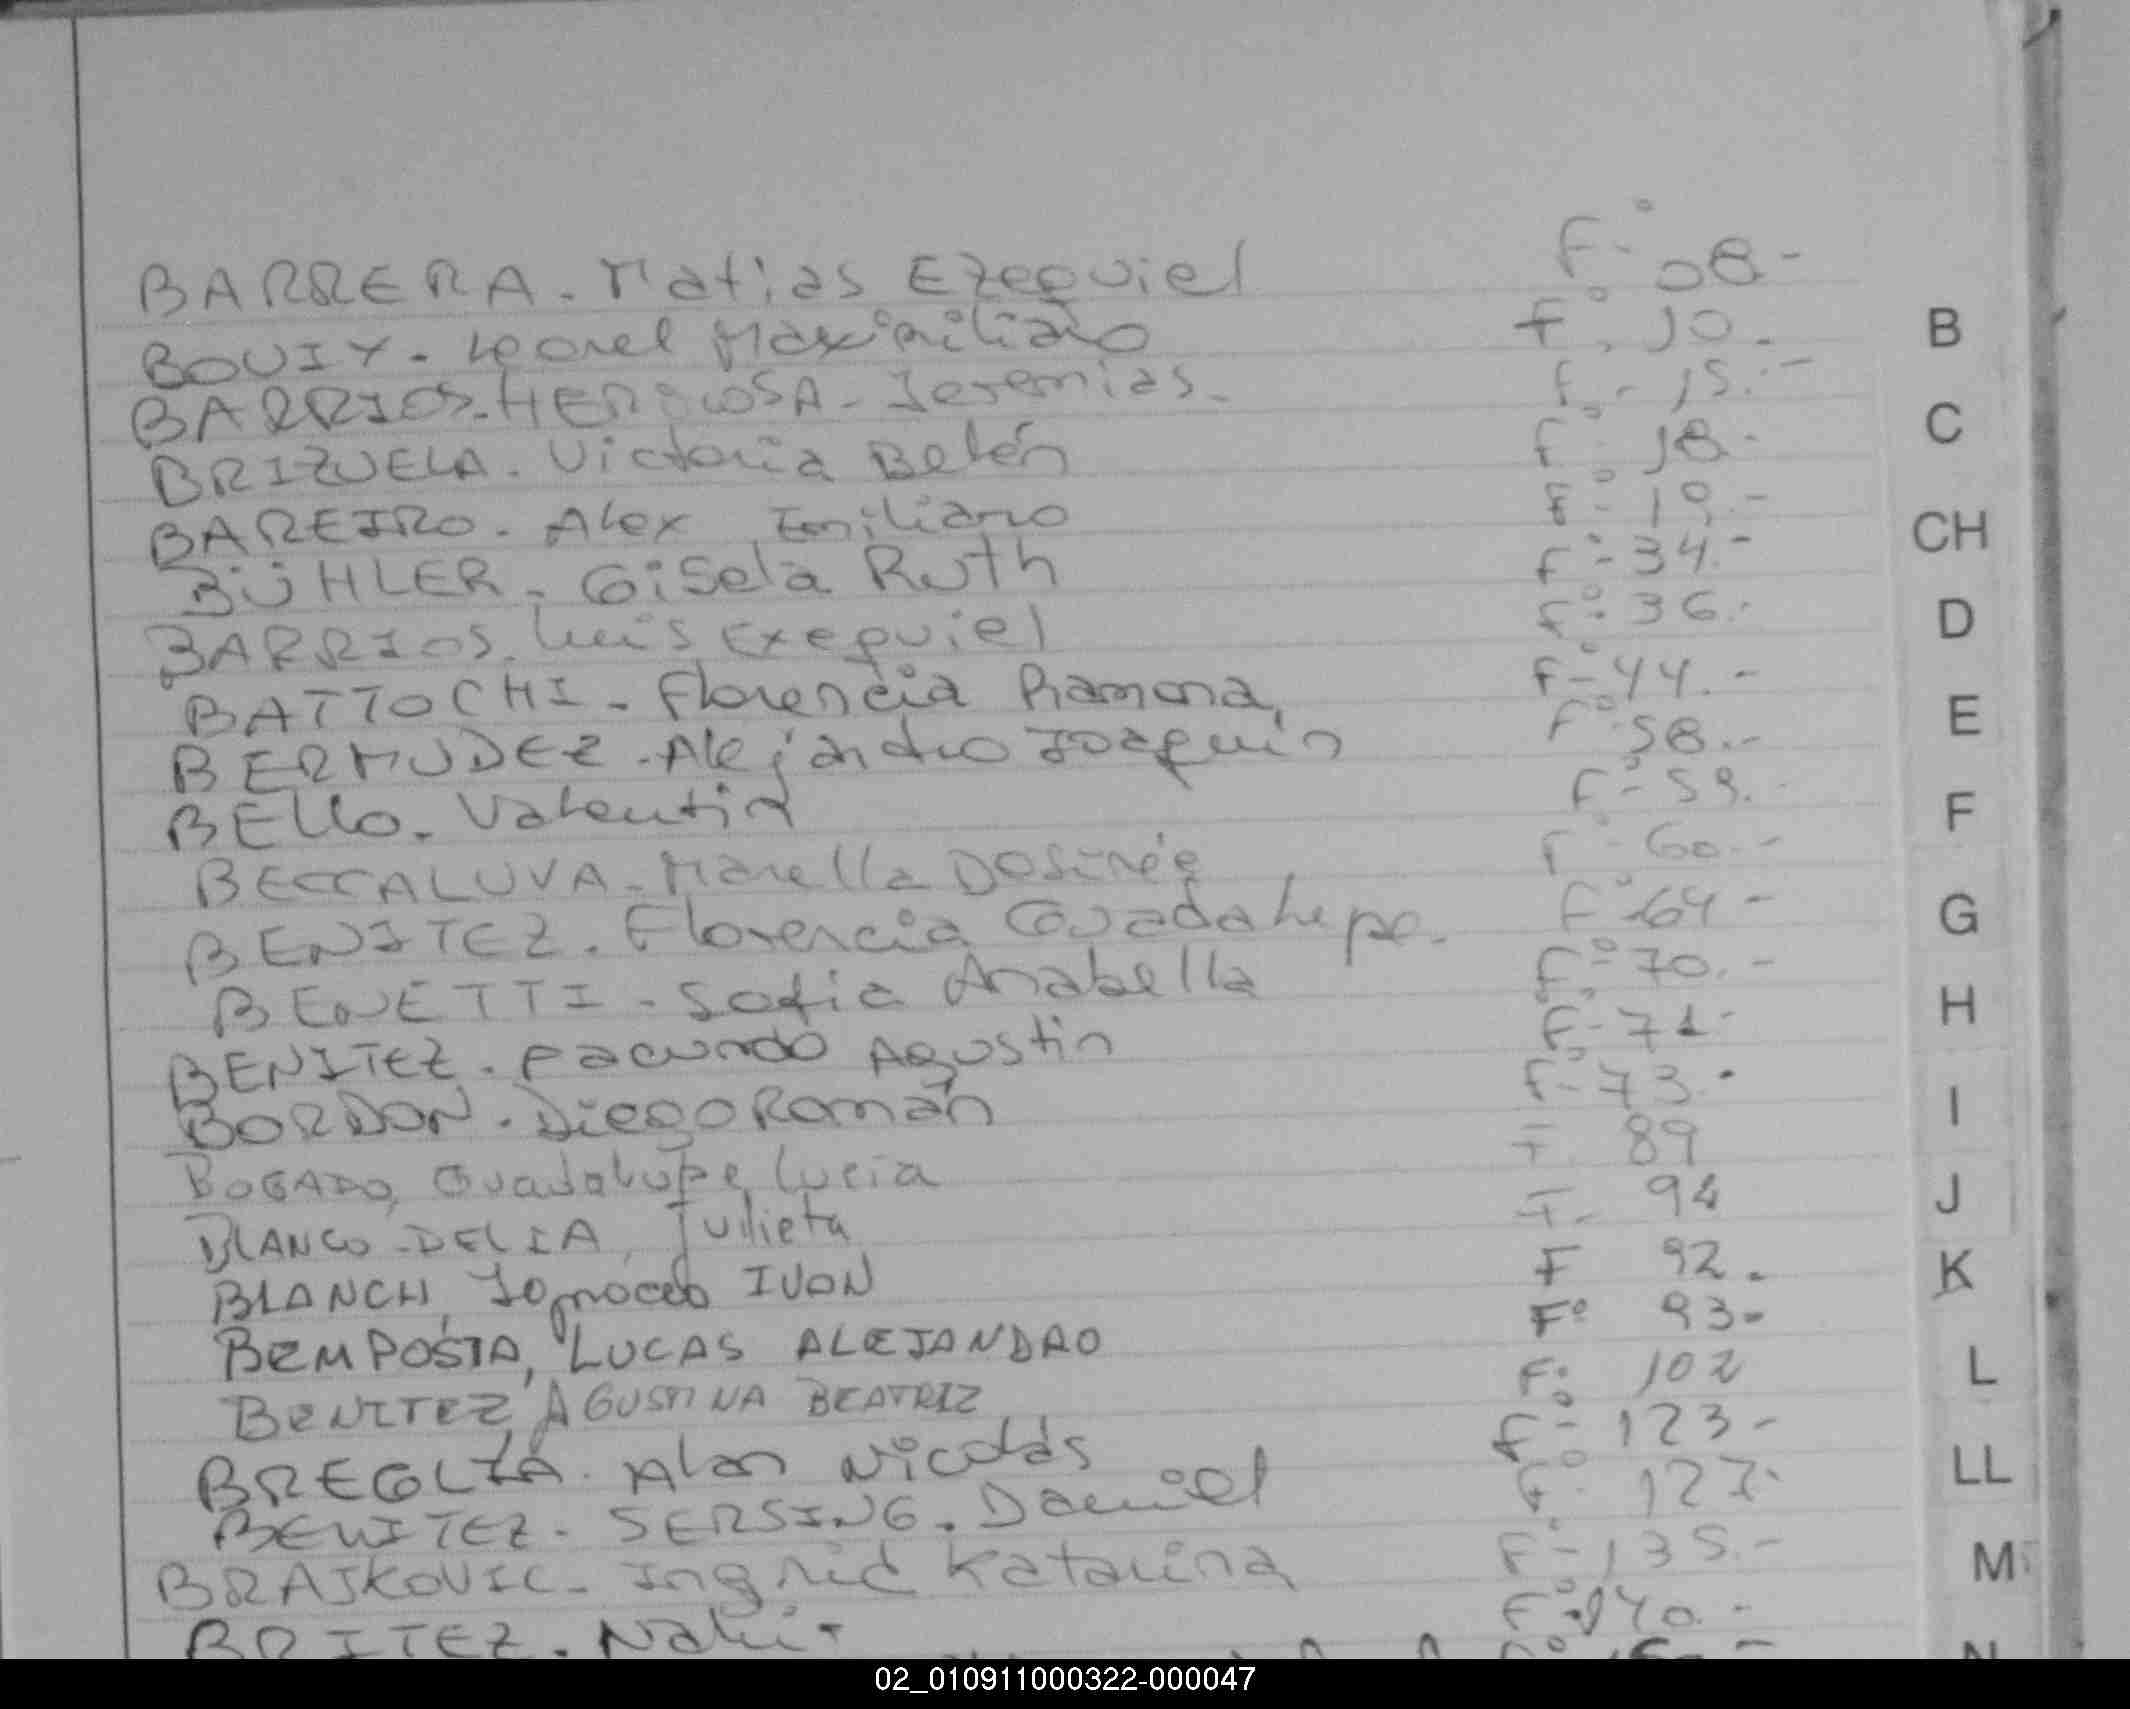 BARRERA. Matias Ezequiel F.° 08.-
BOUIX. Leonel Maximiliano F.° 10.
BARRIOS. HERMOSA. Jeremias. F.- 15.-
BRIZUELA. Victoria Belén F.° 18.
BAREIRO. Alex Emiliano F.° 19.-
BÜHLER. Gisela Ruth F°- 34.-
BARRIOS. Luis Exequiel F°: 36.
BATTOCHI. Florencia Ramona F°- 44.-
BERMUDEZ. Alejandro Joaquin F° 58.-
BELLO. Valentin F°- 59.
BECCALUVA. Marella F°- 60.-
BENITEZ. Florencia Guadalupe. F°- 64-
BENETTI. Sofia Anabella F°- 70.-
BENITEZ. Facundo Agustin F°- 71-
BORDON. Diego Román F°- 73.-
BOGADO, Guadalupe Lucia F. 89
BLANCO-DELIA, Julieta F.
BLANCH, IVON F 92.
BEMPOSTA, LUCAS ALEJANDRO F° 93.
BENITEZ, AGUSTINA BEATRIZ F: 102
BREGLIA. Alan Nicolás F°- 123-
BENITEZ. SERSING. Daniel F° 127.
BRAJKOVIC. Ingrid Katarina F°- 135.-
BRITEZ. F° 140.-
B
C
CH
D
E
F
G
H
I
J
K
L
LL
M
N
02_010911000322-000047